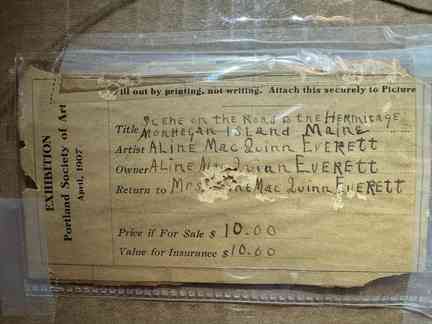 EXHIBITION
Portland Society of Art
April, 1907
ill out by printing, not writing. Attach this securely to Picture
Scene on the Road to the Hermitage
Title Monhegan Island Maine
Artist Aline MacQuinn Everett
Owner Aline Everett
Return to Mrs Mac Quinn Everett
Price if For Sale $ 10.00
Value for Insurance $10.60